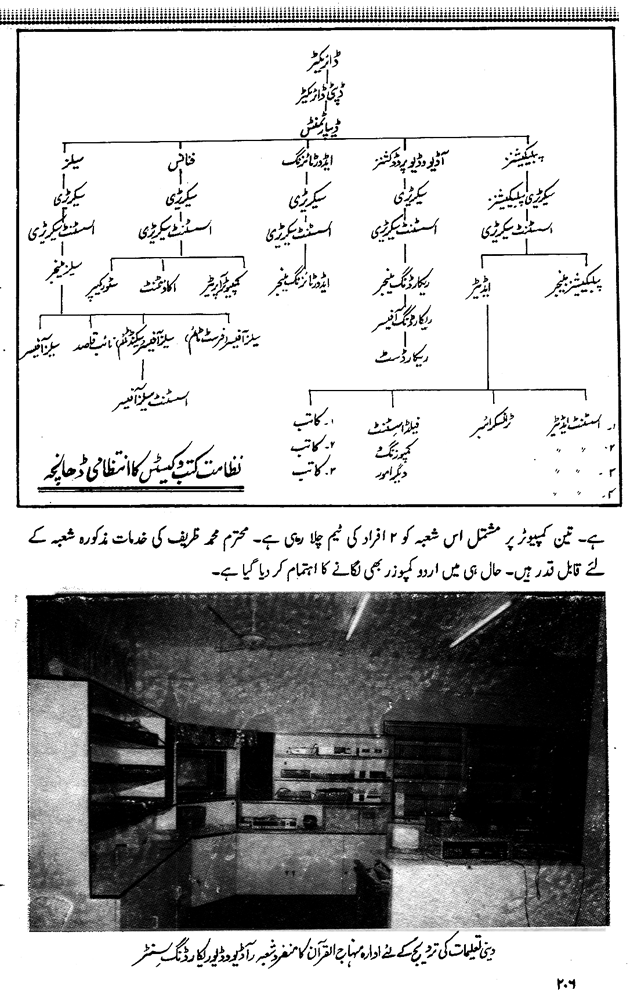 ڈائریکٹر
ڈپٹی ڈائریکٹر
ڈیپارٹمنٹس
پبلیکیشنز آڈیو وڈیو پروڈکشنز ایڈورٹائزنگ فنانس سیلز
سیکرٹری پبلیکیشنز سیکرٹری سیکرٹری سیکرٹری سیکرٹری
اسسٹنٹ سیکرٹری اسسٹنٹ سیکرٹری اسسٹنٹ سیکرٹری اسسٹنٹ سیکرٹری اسسٹنٹ سیکرٹری
پبلیکیشنز مینجر ایڈیٹر ریکارڈنگ مینجر ایڈورٹائزنگ مینجر کمپیوٹر آپریٹر اکاؤنٹنٹ سٹور کیپر سیلز مینجر
ریکارڈنگ آفیسر
سیلز آفیسر (فرسٹ ٹائم) سیلز آفیسر (سیکنڈ ٹائم) نائب قاصد سیلز آفیسر
ریکارڈسٹ
اسسٹنٹ سیلز آفیسر
۱۔ اسسٹنٹ ایڈیٹر ٹرانسکرائبر فیلڈ اسسٹنٹ ۱۔ کاتب
۲۔ " " کمپوزنگ و ۲۔ کاتب
۳۔ " " دیگر امور ۳۔ کاتب
۴۔ " "
نظامت کتب و کیسٹس کا انتظامی ڈھانچہ
ہے۔ تین کمپیوٹر پر مشتمل اس شعبہ کو ۲ افراد کی ٹیم چلا رہی ہے۔ محترم محمد ظریف کی خدمات مذکورہ شعبہ کے
لئے قابل قدر ہیں۔ حال ہی میں اردو کمپوزر بھی لگانے کا اہتمام کر دیا گیا ہے۔
دینی تعلیمات کی ترویج کے لئے ادارہ منہاج القرآن کا منفرد شعبہ (آڈیو وڈیو ریکارڈنگ سنٹر
۲۰۶